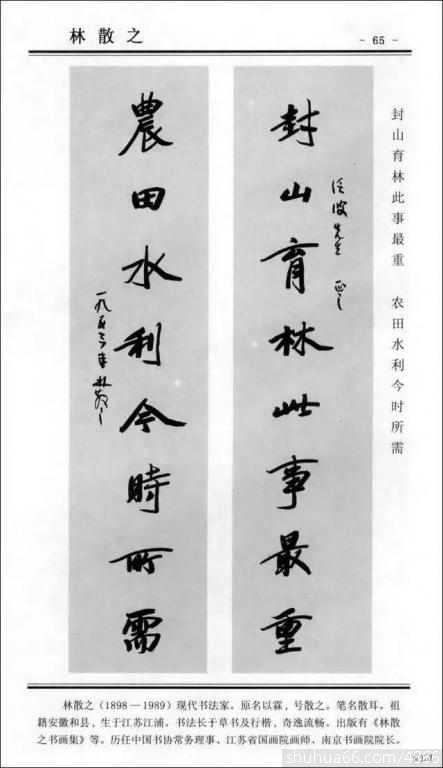 林散之
- 65 -
封山育林此事最重 农田水利今时所需
封山育林此事最重
波先生 正之
農田水利今時所需
一九五六年 林散之
林散之（1898—1989）现代书法家。原名以霖，号散之。笔名散耳。祖
籍安徽和县，生于江苏江浦。书法长于草书及行楷，奇逸流畅。出版有《林散
之书画集》等。历任中国书协常务理事、江苏省国画院画师、南京书画院院长。
shuhua66.com/4866